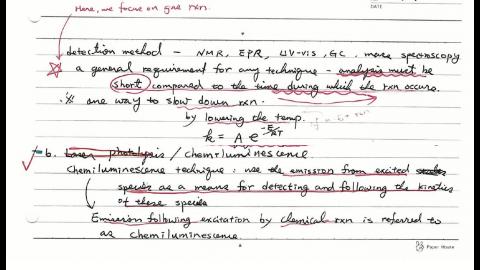 Here, we focus on gas rxn.
DATE
detection method - NMR, EPR, UV-vis, GC, mass spectroscopy
a general requirement for any technique - analysis must be
short compared to the time during which the rxn occurs.
※ one way to slow down rxn.
by lowering the temp.
k = A e^-E/RT
b. Laser photolysis / chemiluminescence
Chemiluminescence technique : use the emission from excited states
species as a means for detecting and following the kinetics
of these species
Emission following excitation by chemical rxn is referred to
as chemiluminescence.
Paper House